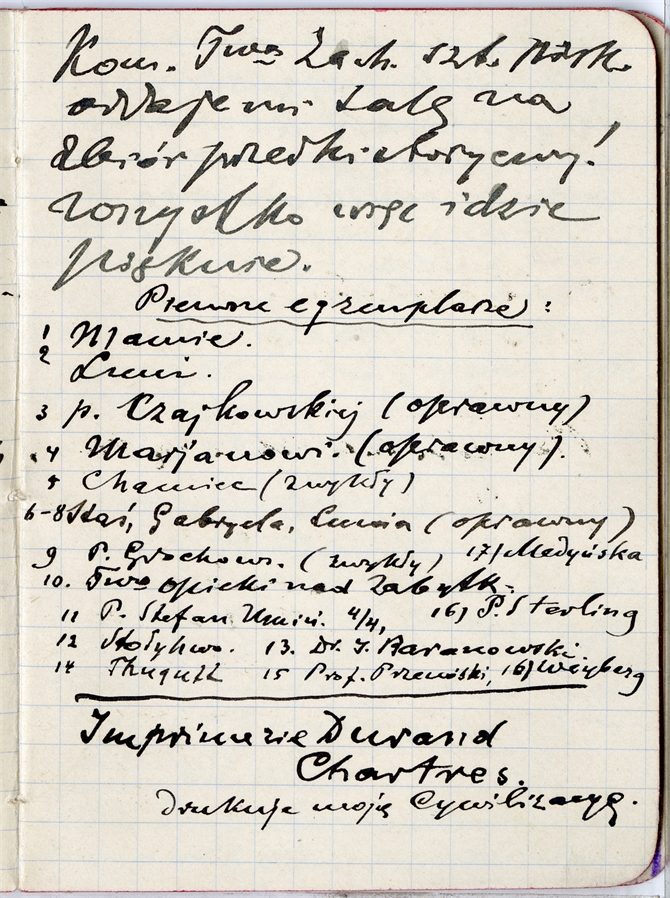 Kom. Twa Zach. szt. piěk.
oddaje mi salę na
zbiór przedhistoryczny!
wszystko więc idzie
pięknie.
Pierwsze egzemplarze:
1 Mamie.
2 Luni.
3 p. Czajkowskiej (oprawny)
4 Marjanowi. (oprawny).
5 Chamiec (zwykły)
6-8 Staś, Gabryela, Lunia (oprawny)
9 P. Grochows. (zwykły) 17) Medyńska
10. Two opieki nad Zabytk.
11 P. Stefan 4/4, 16) P. Sterling
12 Stołyhwo. 13. Dr. I. Baranowski.
14 Thugutt 15 Prof. Przemóski, 16) Weyberg
Imprimerie Durand
Chartres.
drukuje moją Cywilizacyę.